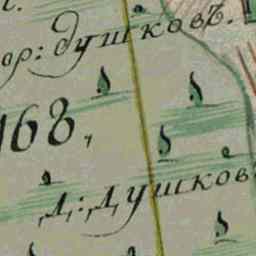 ор: душковъ.
168,
д: душковъ